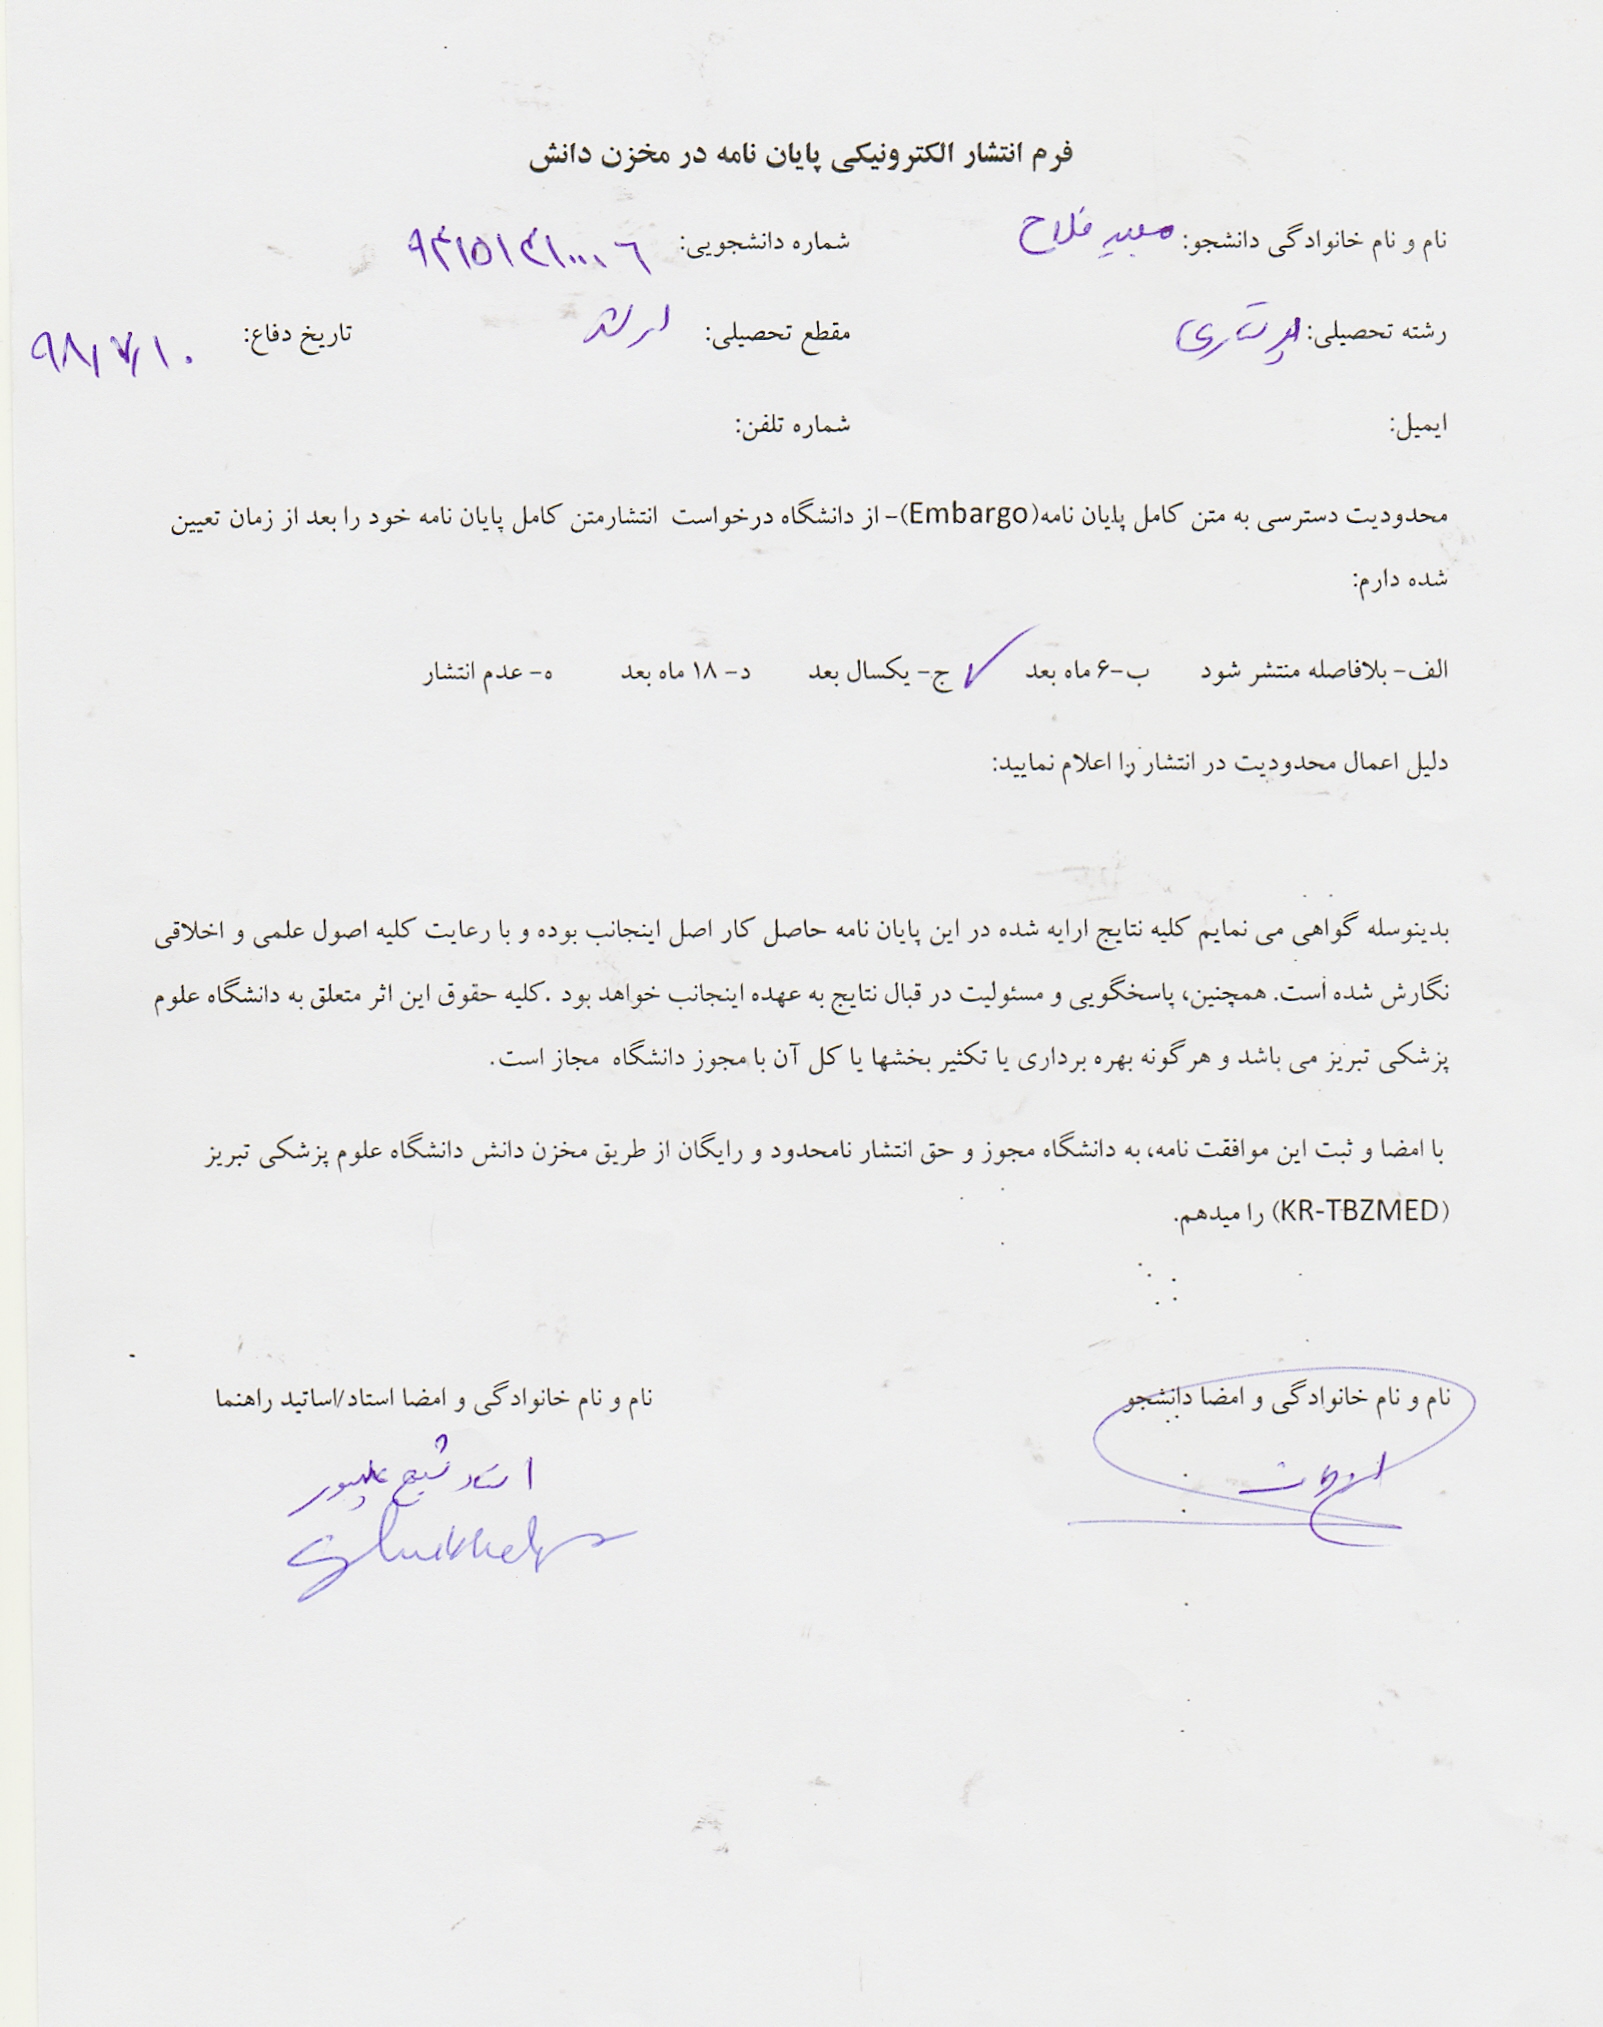 فرم انتشار الکترونیکی پایان نامه در مخزن دانش
نام و نام خانوادگی دانشجو: فلاح شماره دانشجویی:
رشته تحصیلی: پرستاری مقطع تحصیلی: ارشد تاریخ دفاع: ۹۸/۷/۱۰
ایمیل: شماره تلفن:
محدودیت دسترسی به متن کامل پایان نامه(Embargo)- از دانشگاه درخواست انتشارمتن کامل پایان نامه خود را بعد از زمان تعیین
شده دارم:
الف- بلافاصله منتشر شود ب-۶ ماه بعد ✓ ج- یکسال بعد د- ۱۸ ماه بعد ه- عدم انتشار
دلیل اعمال محدودیت در انتشار را اعلام نمایید:
بدینوسله گواهی می نمایم کلیه نتایج ارایه شده در این پایان نامه حاصل کار اصل اینجانب بوده و با رعایت کلیه اصول علمی و اخلاقی
نگارش شده است. همچنین، پاسخگویی و مسئولیت در قبال نتایج به عهده اینجانب خواهد بود .کلیه حقوق این اثر متعلق به دانشگاه علوم
پزشکی تبریز می باشد و هرگونه بهره برداری یا تکثیر بخشها یا کل آن با مجوز دانشگاه مجاز است.
با امضا و ثبت این موافقت نامه، به دانشگاه مجوز و حق انتشار نامحدود و رایگان از طریق مخزن دانش دانشگاه علوم پزشکی تبریز
(KR-TBZMED) را میدهم.
نام و نام خانوادگی و امضا دانشجو نام و نام خانوادگی و امضا استاد/اساتید راهنما
استاد شیخ علیپور